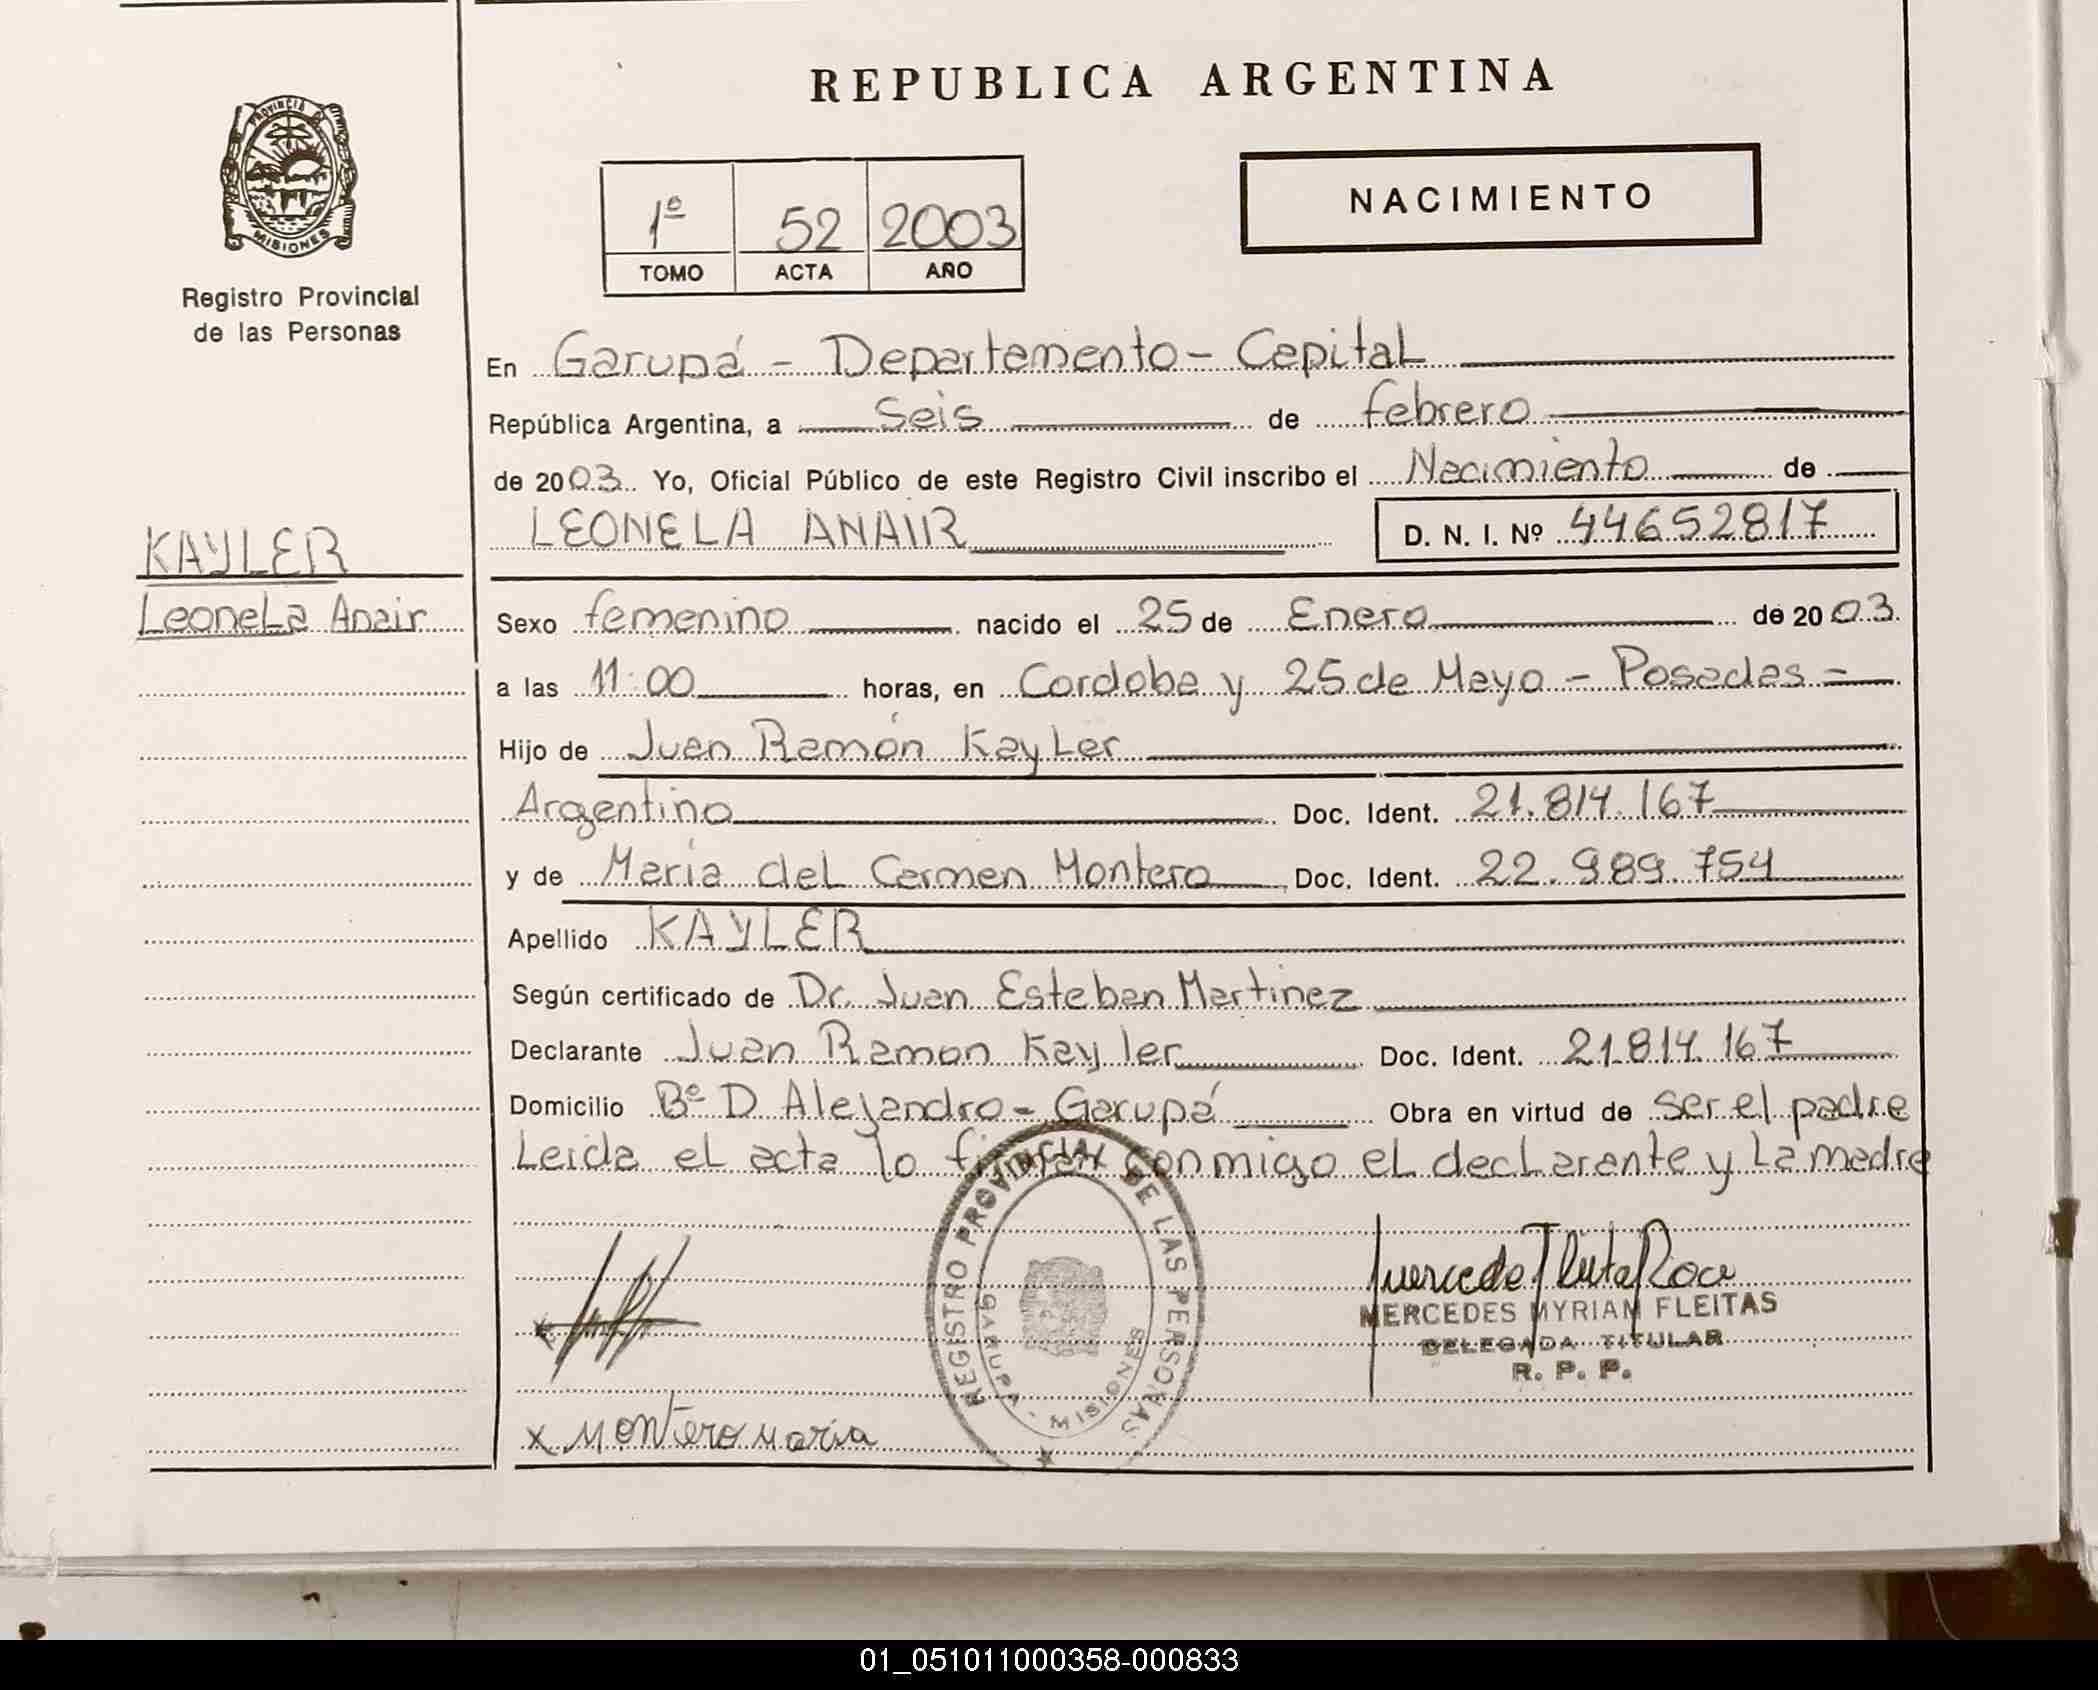 REPUBLICA ARGENTINA
PROVINCIA DE
MISIONES
Registro Provincial
de las Personas
1º 52 2003
TOMO ACTA AÑO
NACIMIENTO
En Garupá - Departamento - Capital
República Argentina, a Seis de febrero
de 2003. Yo, Oficial Público de este Registro Civil inscribo el Nacimiento de
LEONELA ANAIR D. N. I. Nº 44652817
KAYLER
Leonela Anair
Sexo femenino nacido el 25 de Enero de 2003.
a las 11:00 horas, en Cordoba y 25 de Mayo - Posadas =
Hijo de Juan Ramón Kayler
Argentino Doc. Ident. 21.814.167
y de María del Carmen Montero Doc. Ident. 22.989.754
Apellido KAYLER
Según certificado de Dr. Juan Esteban Martinez
Declarante Juan Ramon Kayler Doc. Ident. 21.814.167
Domicilio Bº D Alejandro - Garupá Obra en virtud de ser el padre
Leida el acta lo firman conmigo el declarante y la madre
REGISTRO PROVINCIAL DE LAS PERSONAS
GARUPA - MISIONES
MERCEDES MYRIAM FLEITAS
DELEGADA TITULAR
R. P. P.
x Montero maria
01_051011000358-000833